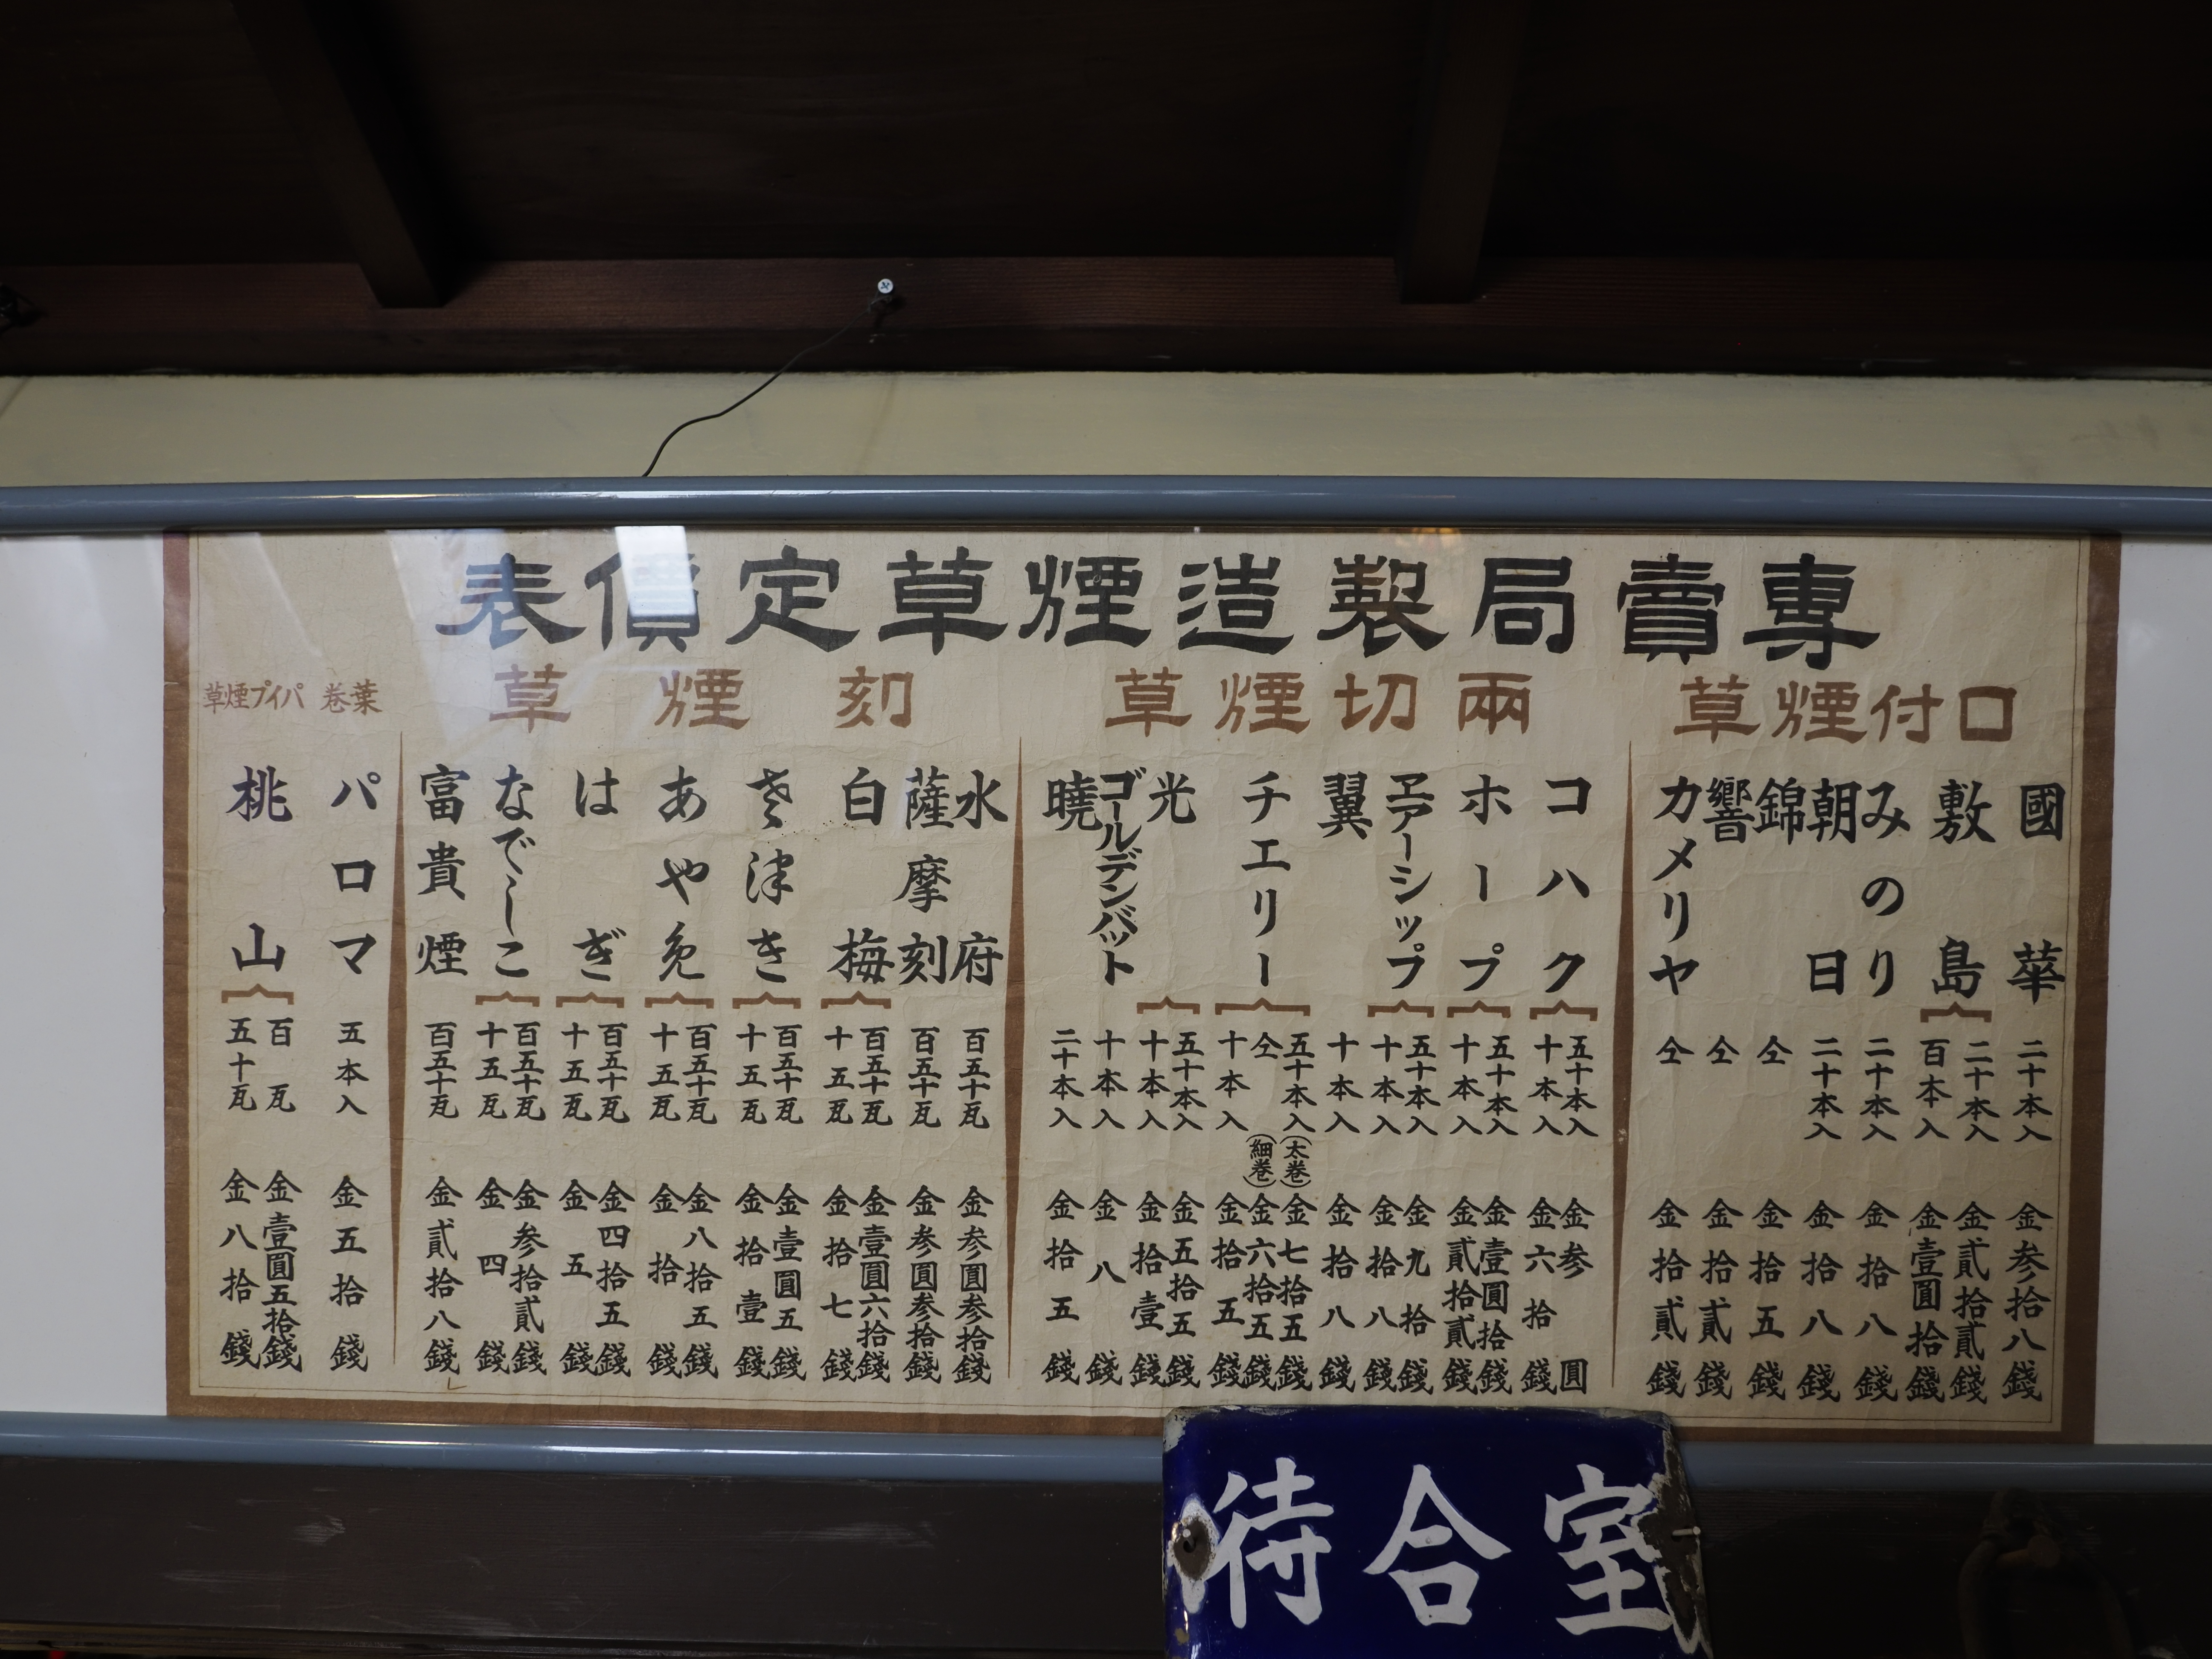 專賣局製造煙草定價表
口付煙草
國華 二十本入 金参拾八錢
敷島 二十本入 金貳拾貳錢
百本入 金壹圓拾錢
みのり 二十本入 金拾八錢
朝日 二十本入 金拾八錢
錦 仝 金拾五錢
響 仝 金拾貳錢
カメリヤ 仝 金拾貳錢
兩切煙草
コハク 五十本入 金参圓
十本入 金六拾錢
ホープ 五十本入 金壹圓拾錢
十本入 金貳拾貳錢
ヱアーシップ 五十本入 金九拾錢
十本入 金拾八錢
翼 十本入 金拾八錢
チエリー 五十本入(太巻) 金七拾五錢
仝(細巻) 金六拾五錢
十本入 金拾五錢
光 五十本入 金五拾五錢
十本入 金拾壹錢
ゴールデンバット 十本入 金八錢
曉 二十本入 金拾五錢
刻煙草
水府 百五十瓦 金参圓参拾錢
薩摩刻 百五十瓦 金参圓参拾錢
白梅 百五十瓦 金壹圓六拾錢
十五瓦 金拾七錢
さ津き 百五十瓦 金壹圓五錢
十五瓦 金拾壹錢
あや免 百五十瓦 金八拾五錢
十五瓦 金拾錢
はぎ 百五十瓦 金四拾五錢
十五瓦 金五錢
なでしこ 百五十瓦 金参拾貳錢
十五瓦 金四錢
富貴煙 百五十瓦 金貳拾八錢
葉巻
パロマ 五本入 金五拾錢
パイプ煙草
桃山 百瓦 金壹圓五拾錢
五十瓦 金八拾錢
待合室